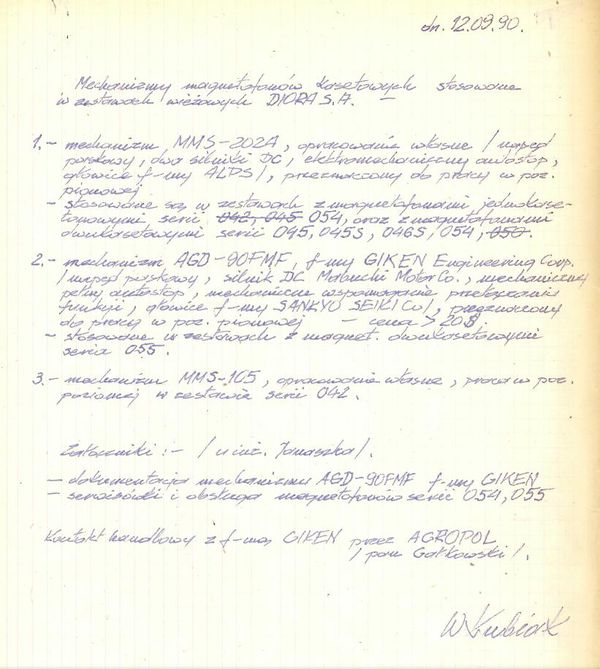 dn. 12.09.90.
Mechanizmy magnetofonów kasetowych stosowane
w zestawach wieżowych DIORA S.A. —
1. - mechanizm MMS-202A, opracowanie własne / napęd
paskowy, dwa silniki DC, elektromechaniczny autostop,
głowice f-my ALPS/, przeznaczony do pracy w poz.
pionowej
- stosowane są w zestawach z magnetofonami jednokase-
towymi serii 042, 045 054, oraz z magnetofonami
dwukasetowymi serii 045, 045S, 046S, 054, 050.
2. - mechanizm AGD-90FMF, f-my GIKEN Engineering Corp.
/ napęd paskowy, silnik DC Mabuchi Motor Co., mechaniczny
pełny autostop, mechaniczne wspomaganie przełączania
funkcji, głowice f-my SANKYO SEIKI Co/, przeznaczony
do pracy w poz. pionowej - cena > 20$
- stosowane w zestawach z magnet. dwukasetowymi
seria 055.
3. - mechanizm MMS-105, opracowanie własne, praca w poz.
poziomej w zestawie serii 042.
Załączniki :- / u inż. Janaszka/.
- dokumentacja mechanizmu AGD-90FMF f-my GIKEN
- serwisówki i obsługa magnetofonów serii 054, 055
Kontakt handlowy z f-mą GIKEN przez AGROPOL
/ pan Gałkowski /.
W Kubiak